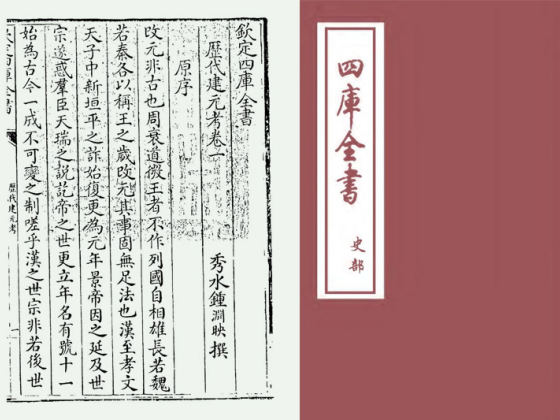 欽定四庫全書
歷代建元考卷一
秀水鍾淵映撰
原序
改元非古也周衰道微王者不作列國自相雄長若魏
若秦各以稱王之歲改元其事固無足法也漢至孝文
天子中新垣平之詐始復更為元年景帝因之延及世
宗遂惑羣臣天瑞之説訖帝之世更立年名有號十一
始為古今一成不可變之制嗟乎漢之世宗非若後世
歷代建元考
四庫全書
史部